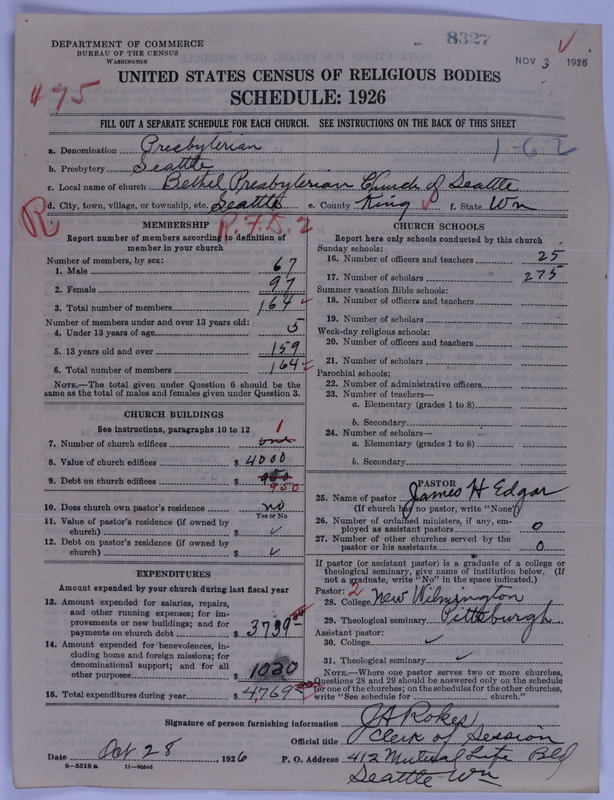 DEPARTMENT OF COMMERCE
BUREAU OF THE CENSUS
WASHINGTON
8327
NOV 3 1926
UNITED STATES CENSUS OF RELIGIOUS BODIES
SCHEDULE: 1926
495
FILL OUT A SEPARATE SCHEDULE FOR EACH CHURCH. SEE INSTRUCTIONS ON THE BACK OF THIS SHEET
a. Denomination Presbyterian
1-62
b. Presbytery Seattle
c. Local name of church Bethel Presbyterian Church of Seattle
d. City, town, village, or township, etc. Seattle e. County King f. State Wn
R
R.F.D. 2
MEMBERSHIP
Report number of members according to definition of
member in your church
Number of members, by sex:
1. Male 67
2. Female 97
3. Total number of members 164
Number of members under and over 13 years old:
4. Under 13 years of age 5
5. 13 years old and over 159
6. Total number of members 164
NOTE.—The total given under Question 6 should be the
same as the total of males and females given under Question 3.
CHURCH BUILDINGS
See instructions, paragraphs 10 to 12
1
7. Number of church edifices one
8. Value of church edifices $ 4000
9. Debt on church edifices $ 950
950
10. Does church own pastor's residence? no
Yes or No
11. Value of pastor's residence (if owned by
church) $ ✓
12. Debt on pastor's residence (if owned by
church) $ ✓
EXPENDITURES
Amount expended by your church during last fiscal year
13. Amount expended for salaries, repairs,
and other running expenses; for im-
provements or new buildings; and for
payments on church debt $ 3739
14. Amount expended for benevolences, in-
cluding home and foreign missions; for
denominational support; and for all
other purposes $ 1020
15. Total expenditures during year $ 4769
CHURCH SCHOOLS
Report here only schools conducted by this church
Sunday schools:
16. Number of officers and teachers 25
17. Number of scholars 275
Summer vacation Bible schools:
18. Number of officers and teachers
19. Number of scholars
Week-day religious schools:
20. Number of officers and teachers
21. Number of scholars
Parochial schools:
22. Number of administrative officers
23. Number of teachers—
a. Elementary (grades 1 to 8)
b. Secondary
24. Number of scholars—
a. Elementary (grades 1 to 8)
b. Secondary
PASTOR
25. Name of pastor James H Edgar
(If church has no pastor, write "None")
26. Number of ordained ministers, if any, em-
ployed as assistant pastors 0
27. Number of other churches served by the
pastor or his assistants 0
If pastor (or assistant pastor) is a graduate of a college or
theological seminary, give name of institution below. (If
not a graduate, write "No" in the space indicated.)
Pastor: 2
28. College New Wilmington
29. Theological seminary Pittsburgh
Assistant pastor:
30. College ✓
31. Theological seminary ✓
NOTE.—Where one pastor serves two or more churches,
Questions 28 and 29 should be answered only on the schedule
for one of the churches; on the schedules for the other churches,
write "See schedule for church."
Signature of person furnishing information JA Rokes
Official title Clerk of Session
Date Oct 28, 1926 P. O. Address 412 Mutual Life Bld
8—5318a 11—9656d
Seattle Wn